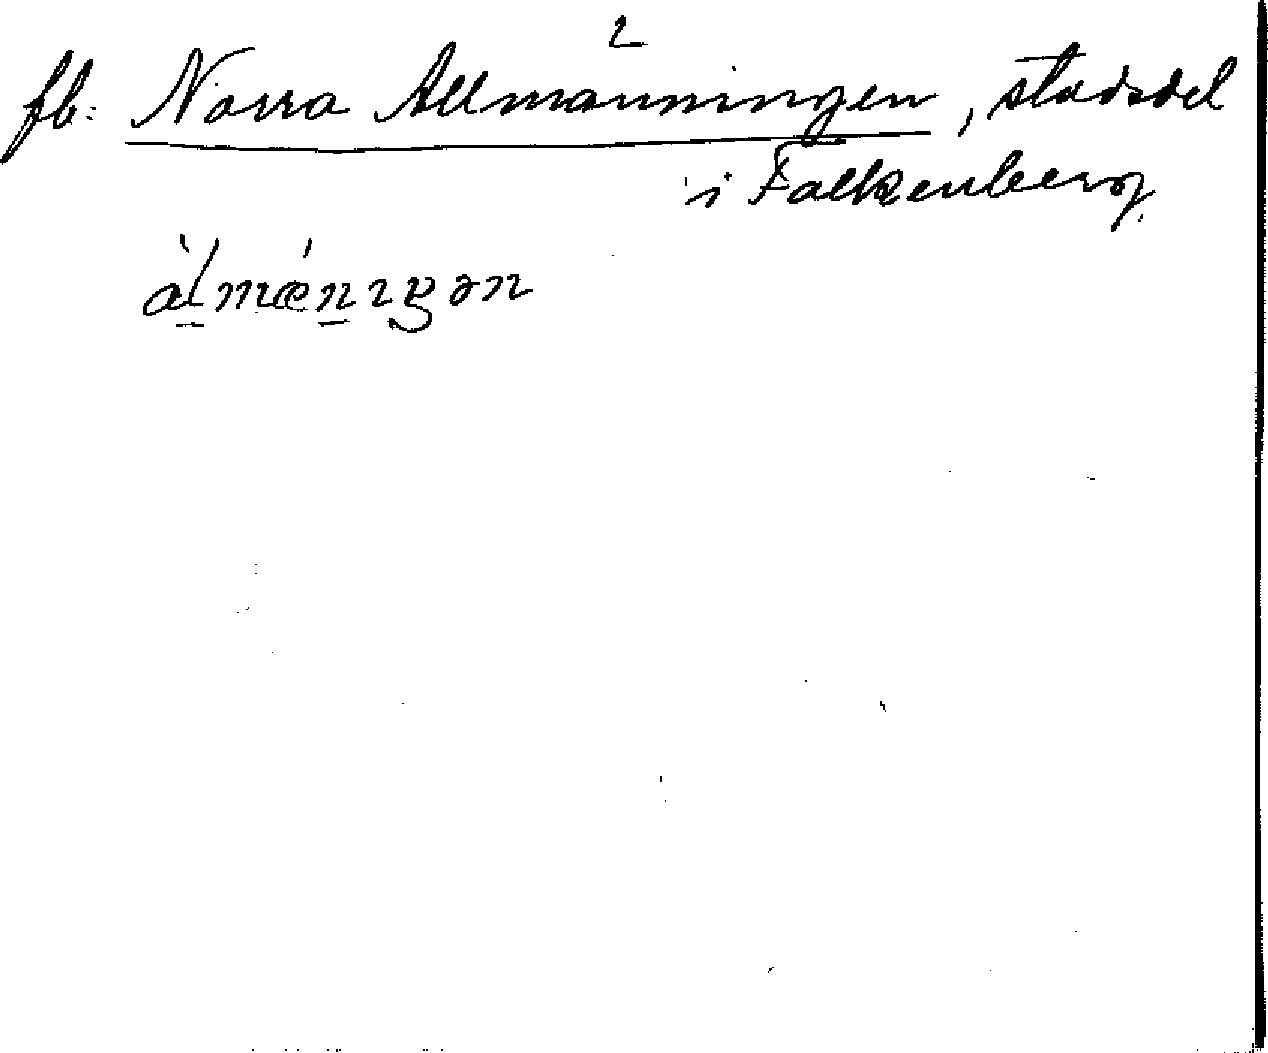 2
fb: Norra Allmänningen, stadsdel
i Falkenberg